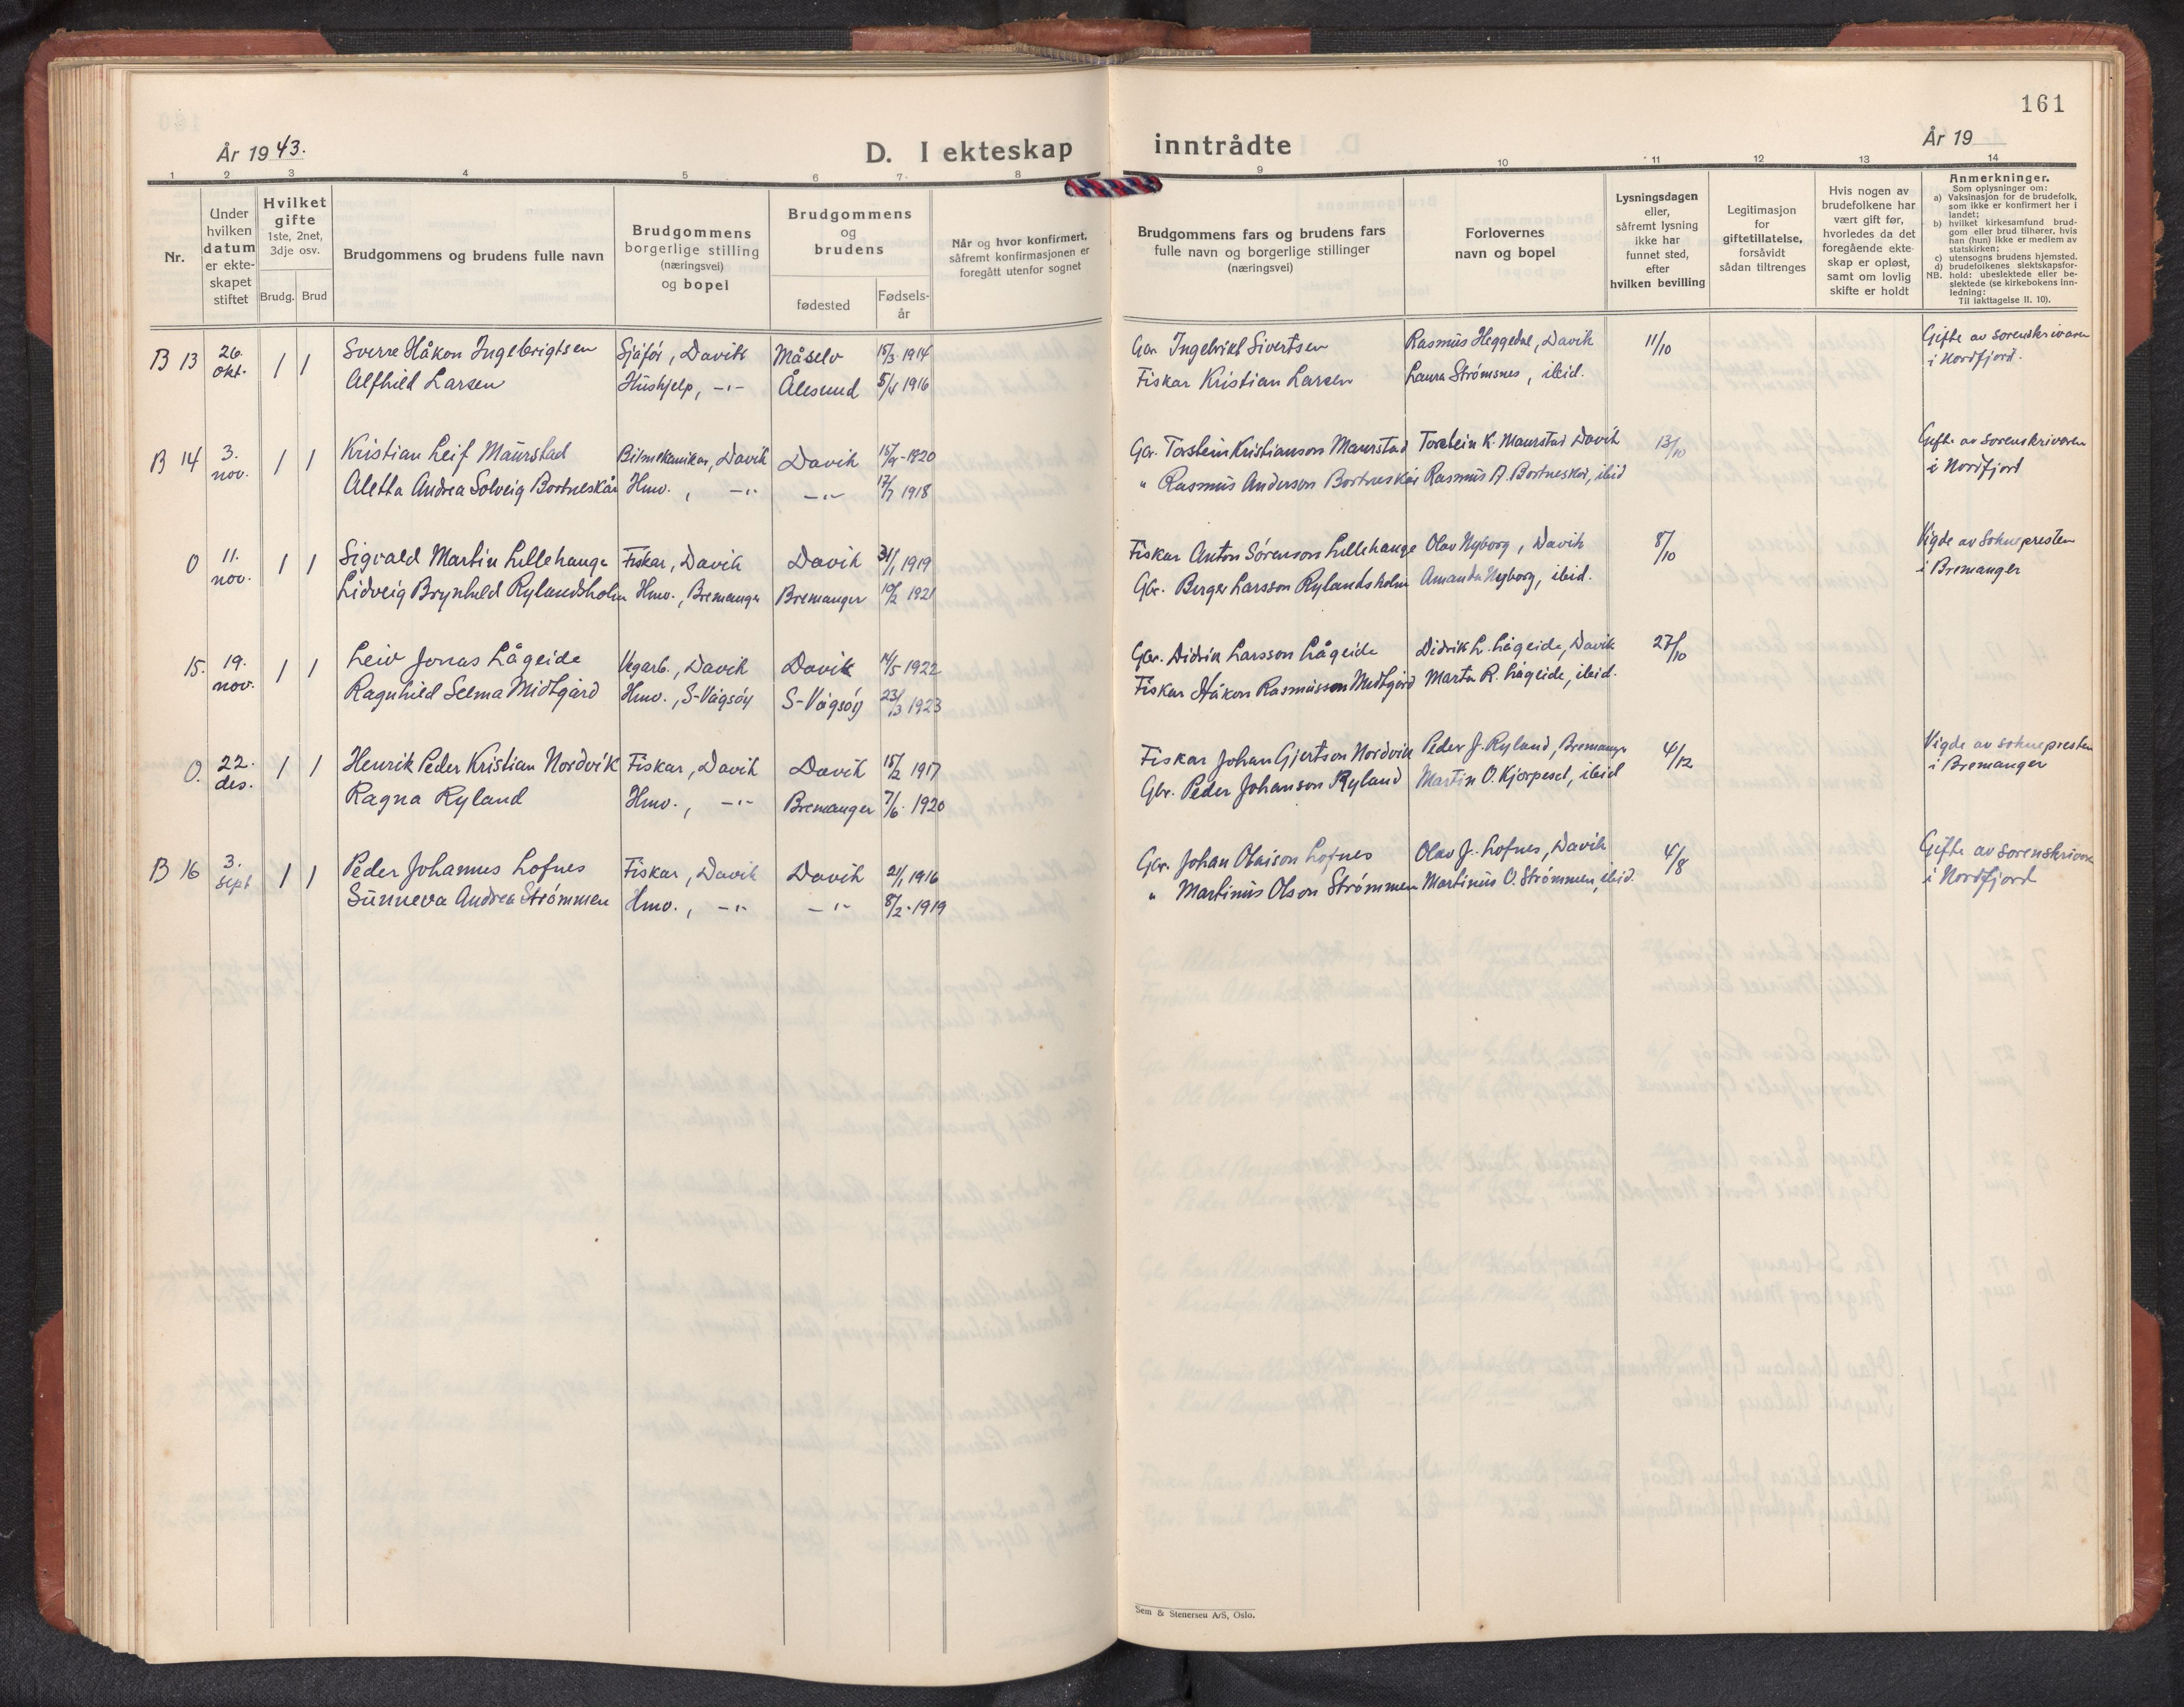 161
År 1943.
D. I ekteskap inntrådte
År 19
1 2 3 4 5 6 7 8 9 10 11 12 13 14
Nr.
Under hvilken datum er ekteskapet stiftet
Hvilket gifte
1ste, 2net, 3dje osv.
Brudg. Brud
Brudgommens og brudens fulle navn
Brudgommens borgerlige stilling (næringsvei) og bopel
Brudgommens og brudens
fødested
Fødselsår
Når og hvor konfirmert, såfremt konfirmasjonen er foregått utenfor sognet
Brudgommens fars og brudens fars fulle navn og borgerlige stillinger (næringsvei)
Forlovernes navn og bopel
Lysningsdagen eller, såfremt lysning ikke har funnet sted, efter hvilken bevilling
Legitimasjon for giftetillatelse, forsåvidt sådan tiltrenges
Hvis nogen av brudefolkene har vært gift før, hvorledes da det foregående ekteskap er opløst, samt om lovlig skifte er holdt
Anmerkninger.
Som oplysninger om:
a) Vaksinasjon for de brudefolk, som ikke er konfirmert her i landet;
b) hvilket kirkesamfund brudgom eller brud tilhører, hvis han (hun) ikke er medlem av statskirken;
c) utensogns brudens hjemsted.
d) brudefolkenes slektskapsforhold: ubeslektede eller beslektede (se kirkebokens innledning:
NB.
Til iakttagelse II. 10).
B 13 26. okt. 1 1 Sverre Håkon Ingebrigtsen Sjåfør, Davik Måselv 15/3 1914 Gbr. Ingebrikt Sivertsen Rasmus Heggedal, Davik 11/10 Gifte av sorenskrivaren
Alfhild Larsen Hushjelp, -"- Ålesund 1916 Fiskar Kristian Larsen Laura Strømsnes, ibid. i Nordfjord.
B 14 3. nov. 1 1 Kristian Leif Maurstad Bilmekanikar, Davik Davik 15/9-1920 Gbr. Torstein Kristianson Maurstad Torstein K. Maurstad Davik 13/10 Gifte av sorenskrivaren
Aletta Andrea Solveig Bortneskår Hmv., -"- -"- 17/7 1918 " Rasmus Anderson Bortneskår Rasmus A. Bortneskår, ibid i Nordfjord
O 11. nov. 1 1 Sigvald Martin Lillehauge Fiskar, Davik Davik 31/1 1919 Fiskar Anton Sørenson Lillehauge Olav Nyborg, Davik 8/10 Vigde av soknepresten
Lidveig Brynhild Rylandsholm Hmv., Bremanger Bremanger 10/2 1921 Gbr. Berger Larsson Rylandsholm Amanda Nyborg, ibid. i Bremanger
15. 19. nov. 1 1 Leiv Jonas Lågeide Vegarb., Davik Davik 14/5 1922 Gbr. Didrik Larsson Lågeide Didrik L. Lågeide, Davik 27/10
Ragnhild Selma Midtgård Hmv., S-Vågsøy S-Vågsøy 23/3 1923 Fiskar Håkon Rasmusson Midtgård Marta R. Lågeide, ibid.
O. 22. des. 1 1 Henrik Peder Kristian Nordvik Fiskar, Davik Davik 15/2 1917 Fiskar Johan Gjertson Nordvik Peder J. Ryland, Bremanger 4/12 Vigde av soknepresten
Ragna Ryland Hmv., -"- Bremanger 7/6. 1920 Gbr. Peder Johanson Ryland Martin O. Kjørpeset, ibid i Bremanger
B 16 3. sept 1 1 Peder Johannes Lofnes Fiskar, Davik Davik 21/1 1916 Gbr. Johan Olaison Lofnes Olav J. Lofnes, Davik 4/8 Gifte av sorenskrivar
Sunneva Andrea Strømmen Hmv., -"- -"- 8/2-1919 " Martinus Olson Strømmen Martinus O. Strømmen, ibid. i Nordfjord
Sem & Stenersen A/S, Oslo.